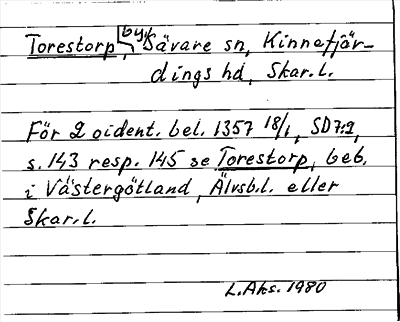 Torestorp, by, Sävare sn, Kinnefjär-
dings hd, Skar.l.
För 2 oident. bel. 1357 18/1, SD7:2,
s. 143 resp. 145 se Torestorp, beb.
i Västergötland, Älvsb.l. eller
Skar.l.
L.Aks. 1980